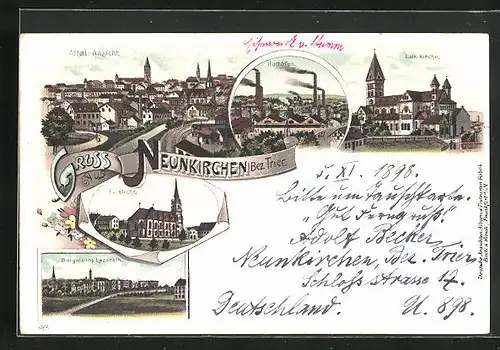 Total-Ansicht.
Eisenwerk v. Stumm
Hochöfen.
Kath. Kirche.
GRUSS AUS NEUNKIRCHEN (Bez. Trier.
Ev. Kirche.
Bergmanns Lazareth.
5. XI. 1898.
Bitte um Tauschkarte.
"Gut Ferngruß!"
Adolf Becker
Neunkirchen, Bez. Trier.
Schlossstrasse 17.
Deutschland. U. 898.